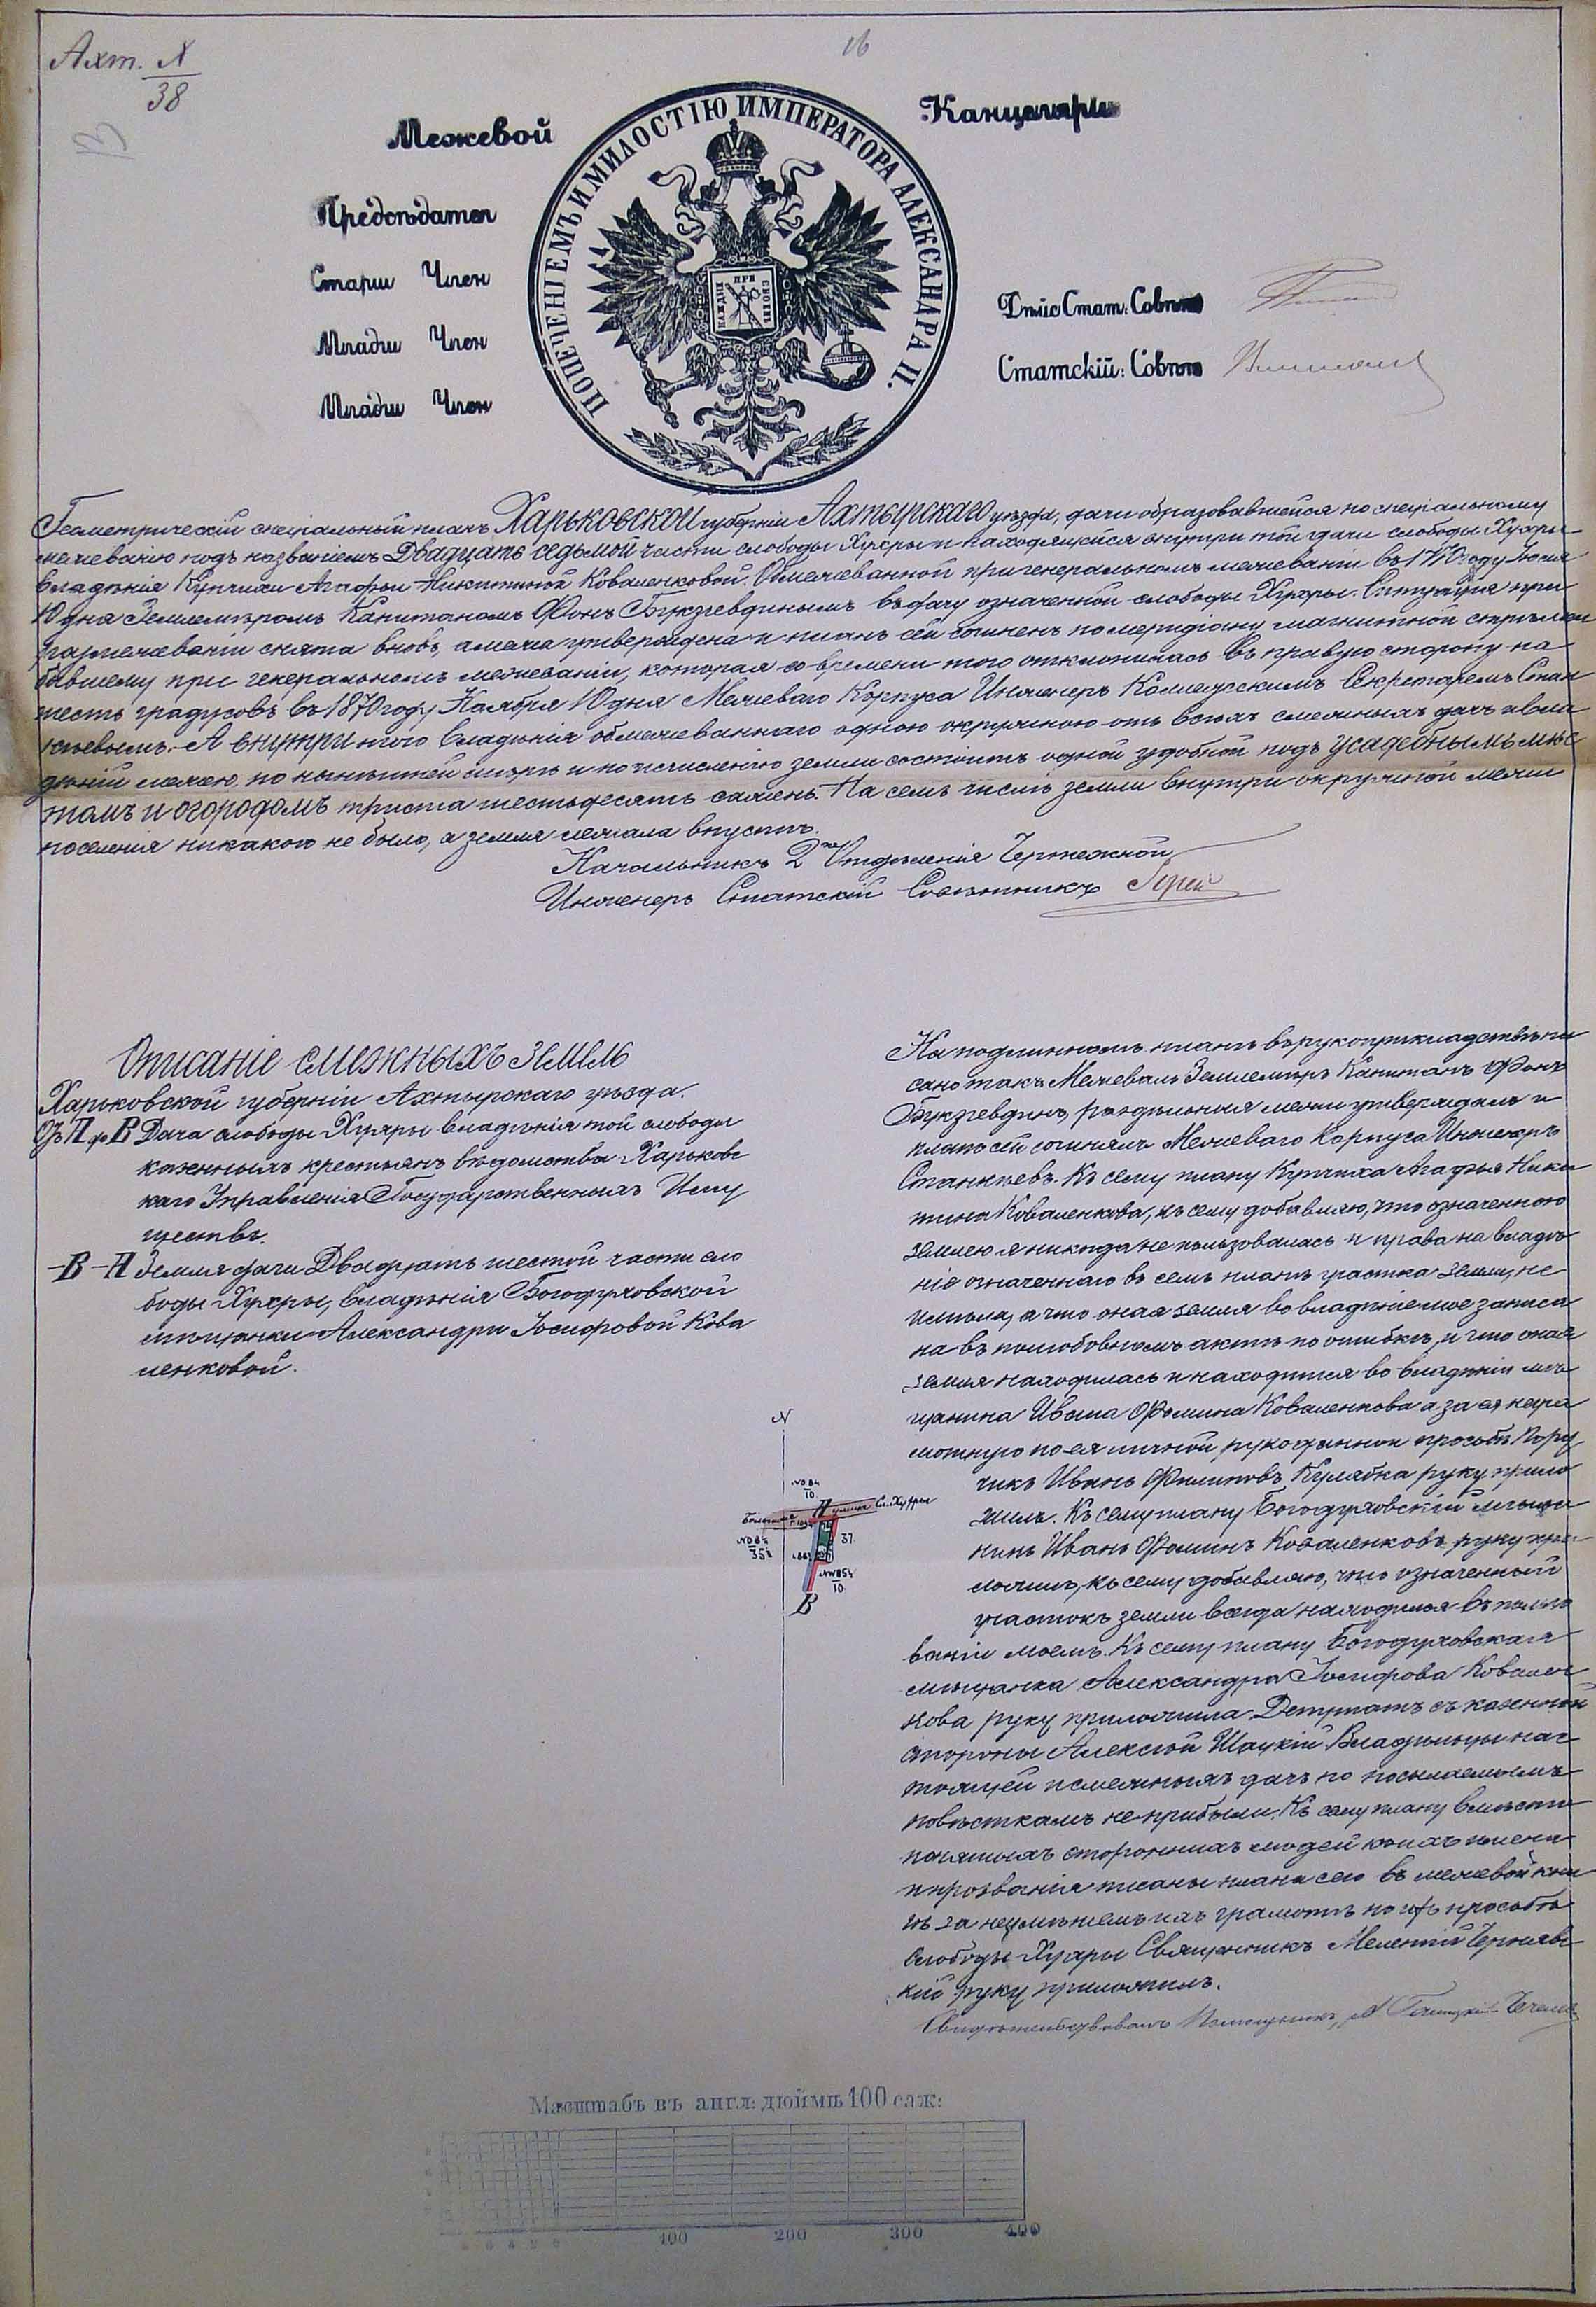 Ахт. N
38
16
13
Межевой Канцеляріи
ПОПЕЧЕНІЕМЪ И МИЛОСТІЮ ИМПЕРАТОРА АЛЕКСАНДРА II.
КАЖДЫЙ ПРИ СВОЕМЪ
Предсѣдател
Старш Член
Младш Член
Младш Член
Дѣйс Стат: Совѣт
Статскій: Совѣт
Геометрическій спеціальный планъ Харьковской губерніи Ахтырскаго уѣзда, дачи образовавшейся по спеціальному
межеванію подъ названіемъ Двадцать седьмой части слободы Хухры и находящейся внутри той дачи слободы Хухры
владѣнія Купчихи Агафьи Никитиной Коваленковой. Обмежеванной при генеральномъ межеваніи въ 1770 году Іюня
10 дня Землемѣромъ Капитаномъ Фонъ Букзгевдинымъ въ дачу означенной слободы Хухры. Ситуація при
размежеваніи снята вновь, а межа утверждена и планъ сей сочиненъ по меридіану магнитной стрѣлки
бывшему при генеральномъ межеваніи, которая со времени того отклонилась въ правую сторону на
шесть градусовъ въ 1870 году Ноября 10 дня Межеваго Корпуса Инженеръ Коллежскимъ Секретаремъ Стан
кѣевымъ. А внутри того владѣнія обмежеваннаго одною окружною отъ всѣхъ смежныхъ дачъ и вла
дѣній межею, по нынѣшней мѣрѣ и по исчисленію земли состоитъ одной удобной подъ усадебнымъ мѣс
томъ и огородомъ триста шестьдесятъ сажень. На семъ числѣ земли внутри окружной межи
поселенія никакого не было, а земля лежала впустѣ.
Начальникъ 2го Отдѣленія Чертежной
Инженеръ Статскій Совѣтникъ
Описаніе смежныхъ земель
Харьковской губерніи Ахтырскаго уѣзда.
Отъ А до В Дача слободы Хухры владѣнія той слободы
казенныхъ крестьянъ вѣдомства Харьковс
каго Управленія Государственныхъ Иму
ществъ.
В А Земля дачи Двадцать шестой части сло
боды Хухры, владѣнія Богодуховской
мѣщанки Александры Іосифовой Кова
ленковой.
На подлинномъ планѣ въ рукоприкладствѣ пи
сано такъ: Межевалъ Землемѣръ Капитанъ Фонъ
Букзгевдинъ, раздѣльныя межи утверждалъ и
планъ сей сочинялъ Межеваго Корпуса Инженеръ
Станкѣевъ. Къ сему плану Купчиха Агафья Ники
тина Коваленкова, къ сему добавляю, что означенною
землею я никогда не пользовалась и права на владѣ
ніе означеннаго въ семъ планѣ участка земли, не
имѣла, а что оная земля во владѣніе мое записа
на въ полюбовномъ актѣ по ошибкѣ, и что оная
земля находилась и находится во владѣніи мѣ
щанина Ивана Фомина Коваленкова а за ея негра
мотную по ея личной рукоданной просьбѣ Пору
чикъ Иванъ Филиповъ Кулябка руку прило
жилъ. Къ сему плану Богодуховскій мѣща
нинъ Иванъ Фоминъ Коваленковъ руку при
ложилъ, къ сему добавляю, что означенный
участокъ земли всегда находился въ пользо
ваніи моемъ. Къ сему плану Богодуховская
мѣщанка Александра Іосифова Коваленкова
кова руку приложила Депутатъ съ казенной
стороны Алексѣй Шацкій. Владѣльцы нас
тоящей и смежныхъ дачъ по посылаемымъ
повѣсткамъ не прибыли. Къ сему плану вмѣсто
понятыхъ стороннихъ людей коихъ имена
и прозванія писаны плана сего въ межевой кни
гѣ за неумѣніемъ ихъ грамотѣ по ихъ просьбѣ
Слободы Хухры Священникъ Мелентій Чернявс
кій руку приложилъ.
Свидѣтельствовалъ Помощникъ
N
А
улица Сл. Хухры
Большая
37
10
10
В
Масштабъ въ англ: дюймѣ 100 саж:
100 200 300 400